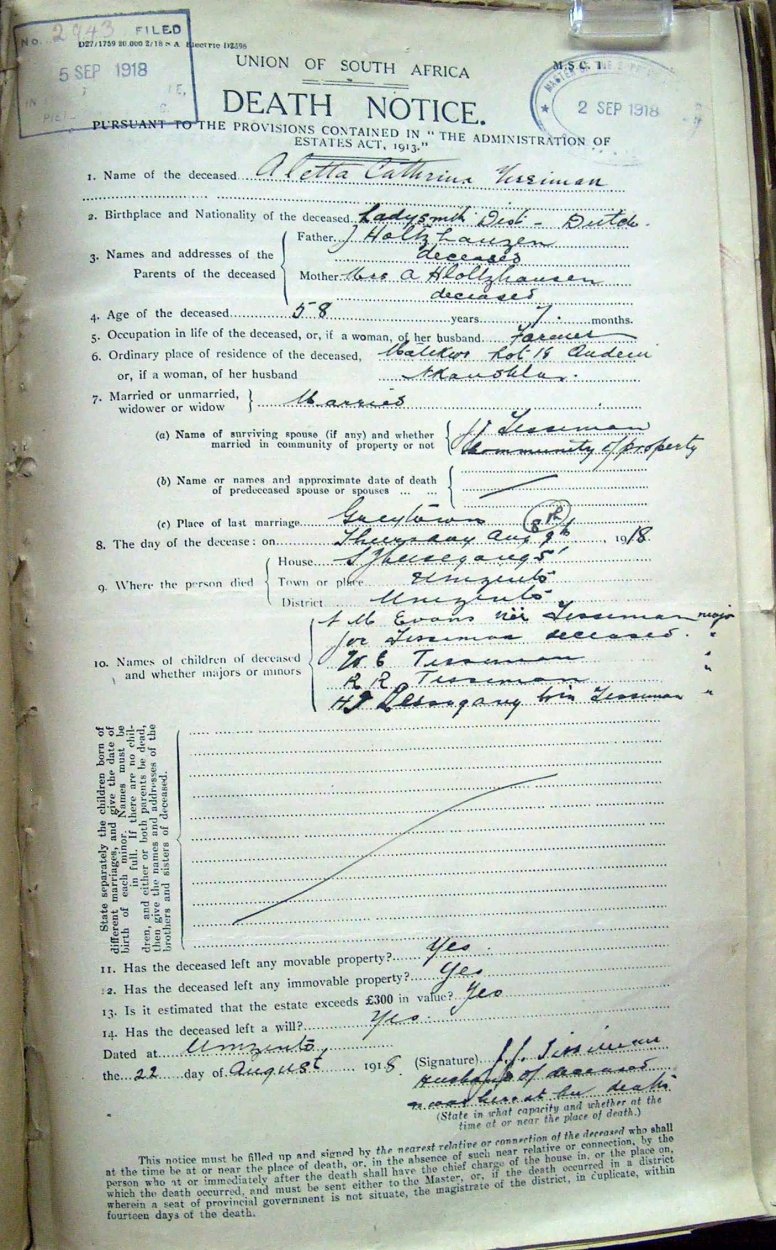 No. 2943 FILED
5 SEP 1918
D27/1759 20.000 2/18 S A Electric D2598
M.S.C. 1.
2 SEP 1918
UNION OF SOUTH AFRICA
DEATH NOTICE.
PURSUANT TO THE PROVISIONS CONTAINED IN "THE ADMINISTRATION OF
ESTATES ACT, 1913."
1. Name of the deceased Aletta Cathrina Tissiman
2. Birthplace and Nationality of the deceased Ladysmith Dist - Dutch.
3. Names and addresses of the Parents of the deceased
Father J Holtzhauzen
deceased
Mother Mrs A Holtzhausen
deceased
4. Age of the deceased 58 years 7 months.
5. Occupation in life of the deceased, or, if a woman, of her husband Farmer
6. Ordinary place of residence of the deceased, Lot 18
or, if a woman, of her husband
7. Married or unmarried, widower or widow Married
(a) Name of surviving spouse (if any) and whether married in community of property or not J J Tissiman
Community of property
(b) Name or names and approximate date of death of predeceased spouse or spouses ... ...
(c) Place of last marriage Greytown
8. The day of the decease: on Thursday Aug 9th 8th 1918
9. Where the person died
House
Town or place Umzinto
District Umzinto
10. Names of children of deceased and whether majors or minors
M Evans née Tissiman major
Tissiman deceased. "
W E Tissiman "
R R Tissiman "
H J Tissiman "
State separately the children born of
different marriages, and give the date of
birth of each minor. Names must be
in full. If there are no chil-
dren, and either or both parents be dead,
then give the names and addresses of the
brothers and sisters of deceased.
11. Has the deceased left any movable property? Yes
12. Has the deceased left any immovable property? Yes
13. Is it estimated that the estate exceeds £300 in value? Yes
14. Has the deceased left a will? Yes.
Dated at Umzinto
the 22 day of August 1918
(Signature) J.J. Tissiman
Husband of deceased
was here at her death
(State in what capacity and whether at the
time at or near the place of death.)
This notice must be filled up and signed by the nearest relative or connection of the deceased who shall
at the time be at or near the place of death, or, in the absence of such near relative or connection, by the
person who at or immediately after the death shall have the chief charge of the house in, or the place on,
which the death occurred, and must be sent either to the Master, or, if the death occurred in a district
wherein a seat of provincial government is not situate, the magistrate of the district, in duplicate, within
fourteen days of the death.